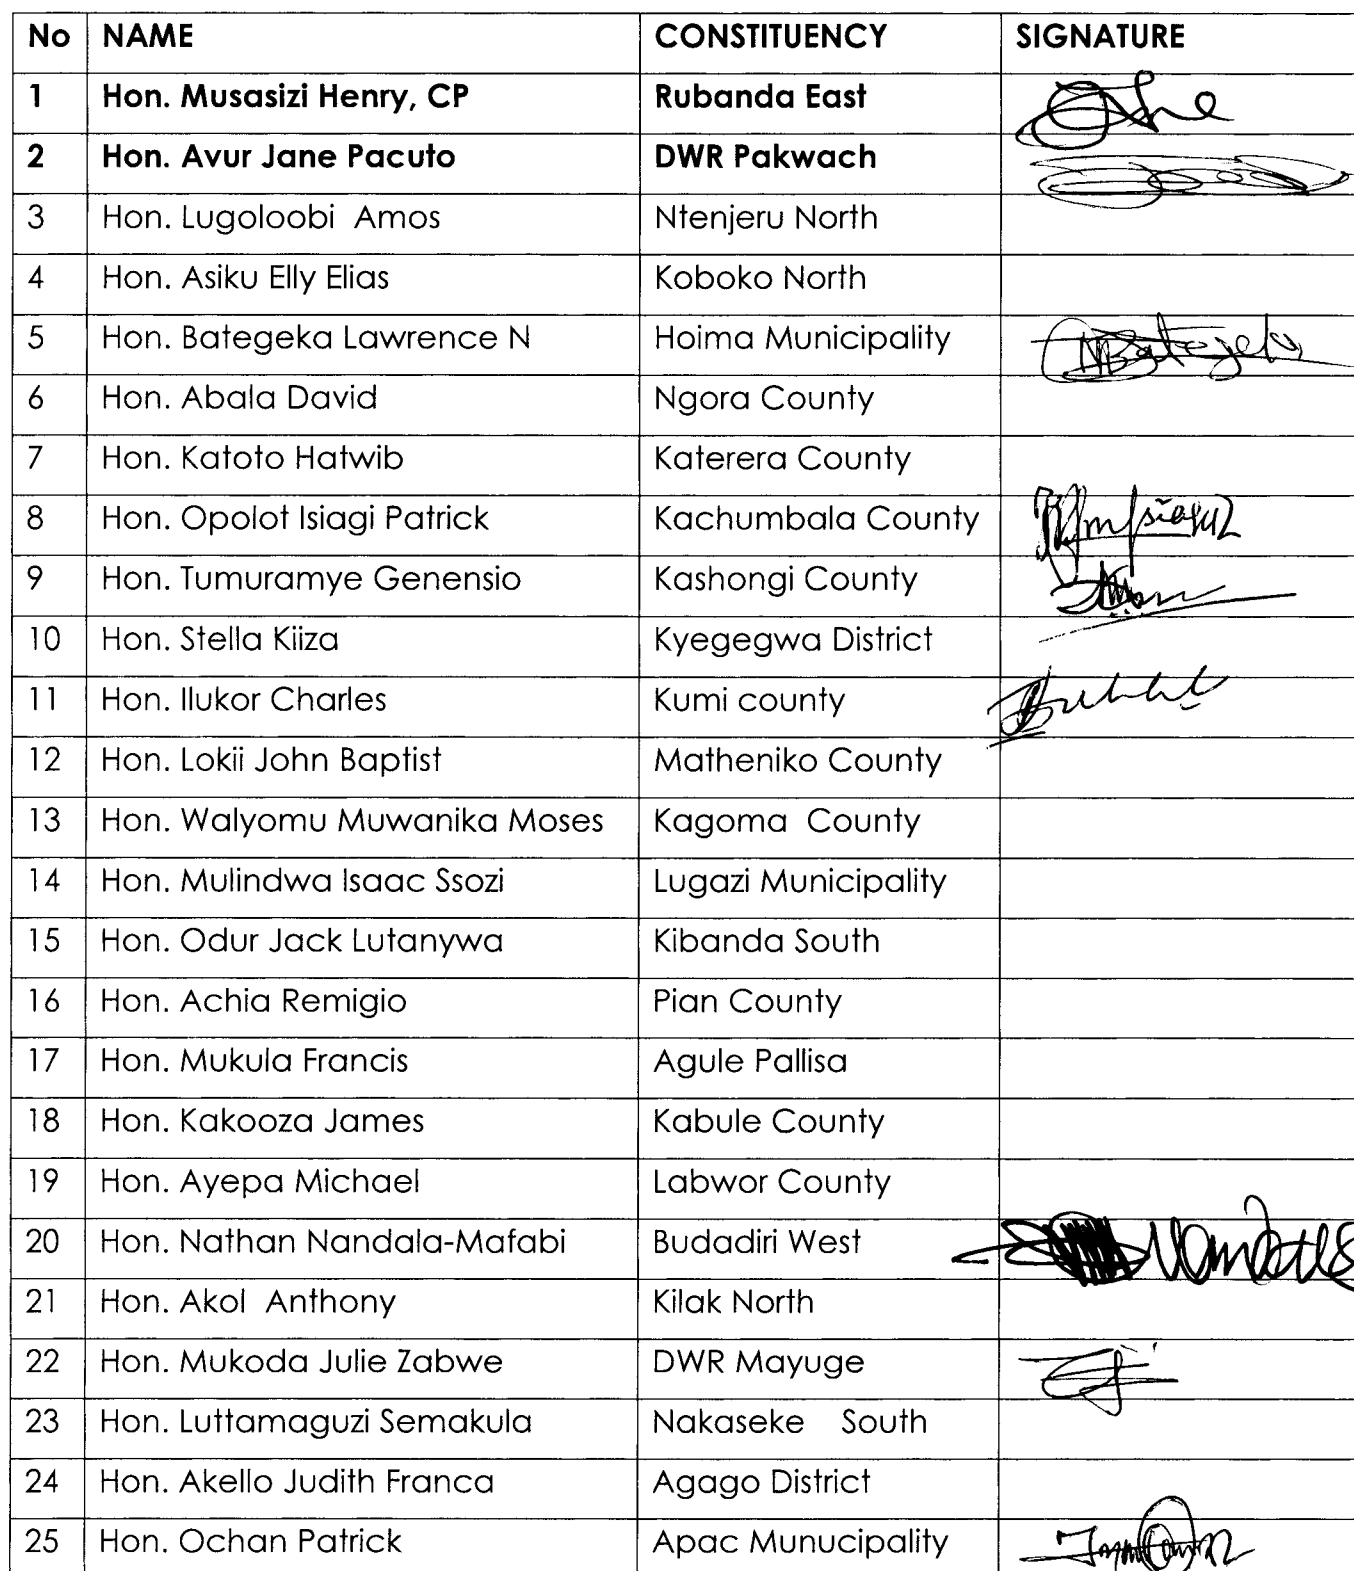 No NAME CONSTITUENCY SIGNATURE
1 Hon. Musasizi Henry, CP Rubanda East
2 Hon. Avur Jane Pacuto DWR Pakwach
3 Hon. Lugoloobi Amos Ntenjeru North
4 Hon. Asiku Elly Elias Koboko North
5 Hon. Bategeka Lawrence N Hoima Municipality NBategeka
6 Hon. Abala David Ngora County
7 Hon. Katoto Hatwib Katerera County
8 Hon. Opolot Isiagi Patrick Kachumbala County
9 Hon. Tumuramye Genensio Kashongi County
10 Hon. Stella Kiiza Kyegegwa District
11 Hon. Ilukor Charles Kumi county
12 Hon. Lokii John Baptist Matheniko County
13 Hon. Walyomu Muwanika Moses Kagoma County
14 Hon. Mulindwa Isaac Ssozi Lugazi Municipality
15 Hon. Odur Jack Lutanywa Kibanda South
16 Hon. Achia Remigio Pian County
17 Hon. Mukula Francis Agule Pallisa
18 Hon. Kakooza James Kabule County
19 Hon. Ayepa Michael Labwor County
20 Hon. Nathan Nandala-Mafabi Budadiri West
21 Hon. Akol Anthony Kilak North
22 Hon. Mukoda Julie Zabwe DWR Mayuge
23 Hon. Luttamaguzi Semakula Nakaseke South
24 Hon. Akello Judith Franca Agago District
25 Hon. Ochan Patrick Apac Munucipality